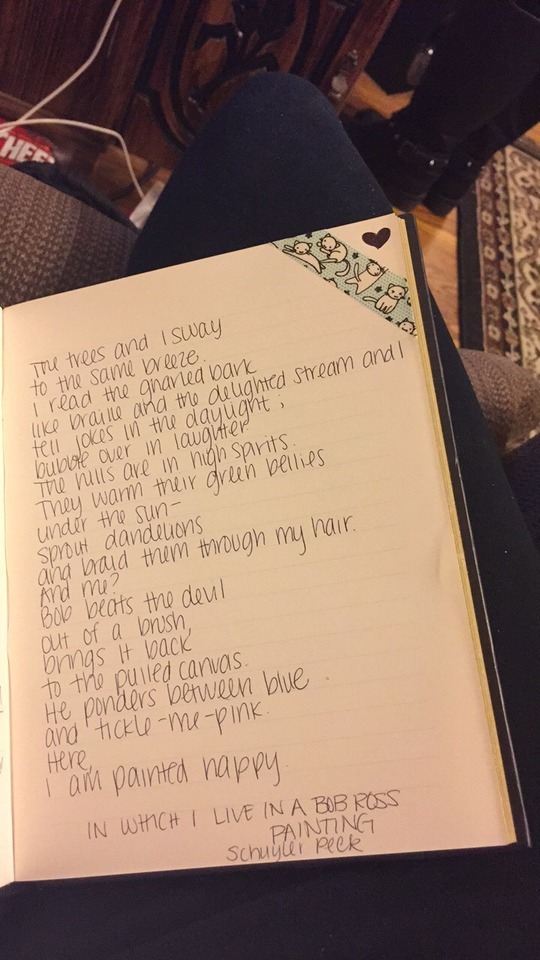 HEE
The trees and I sway
to the same breeze.
I read the gnarled bark
like braille and the delighted stream and I
tell jokes in the daylight;
bubble over in laughter
The hills are in high spirits.
They warm their green bellies
under the sun-
sprout dandelions
and braid them through my hair.
And me?
Bob beats the devil
out of a brush,
brings it back
to the pulled canvas.
He ponders between blue
and tickle-me-pink.
Here,
I am painted happy.
IN WHICH I LIVE IN A BOB ROSS
PAINTING
Schuyler Peck